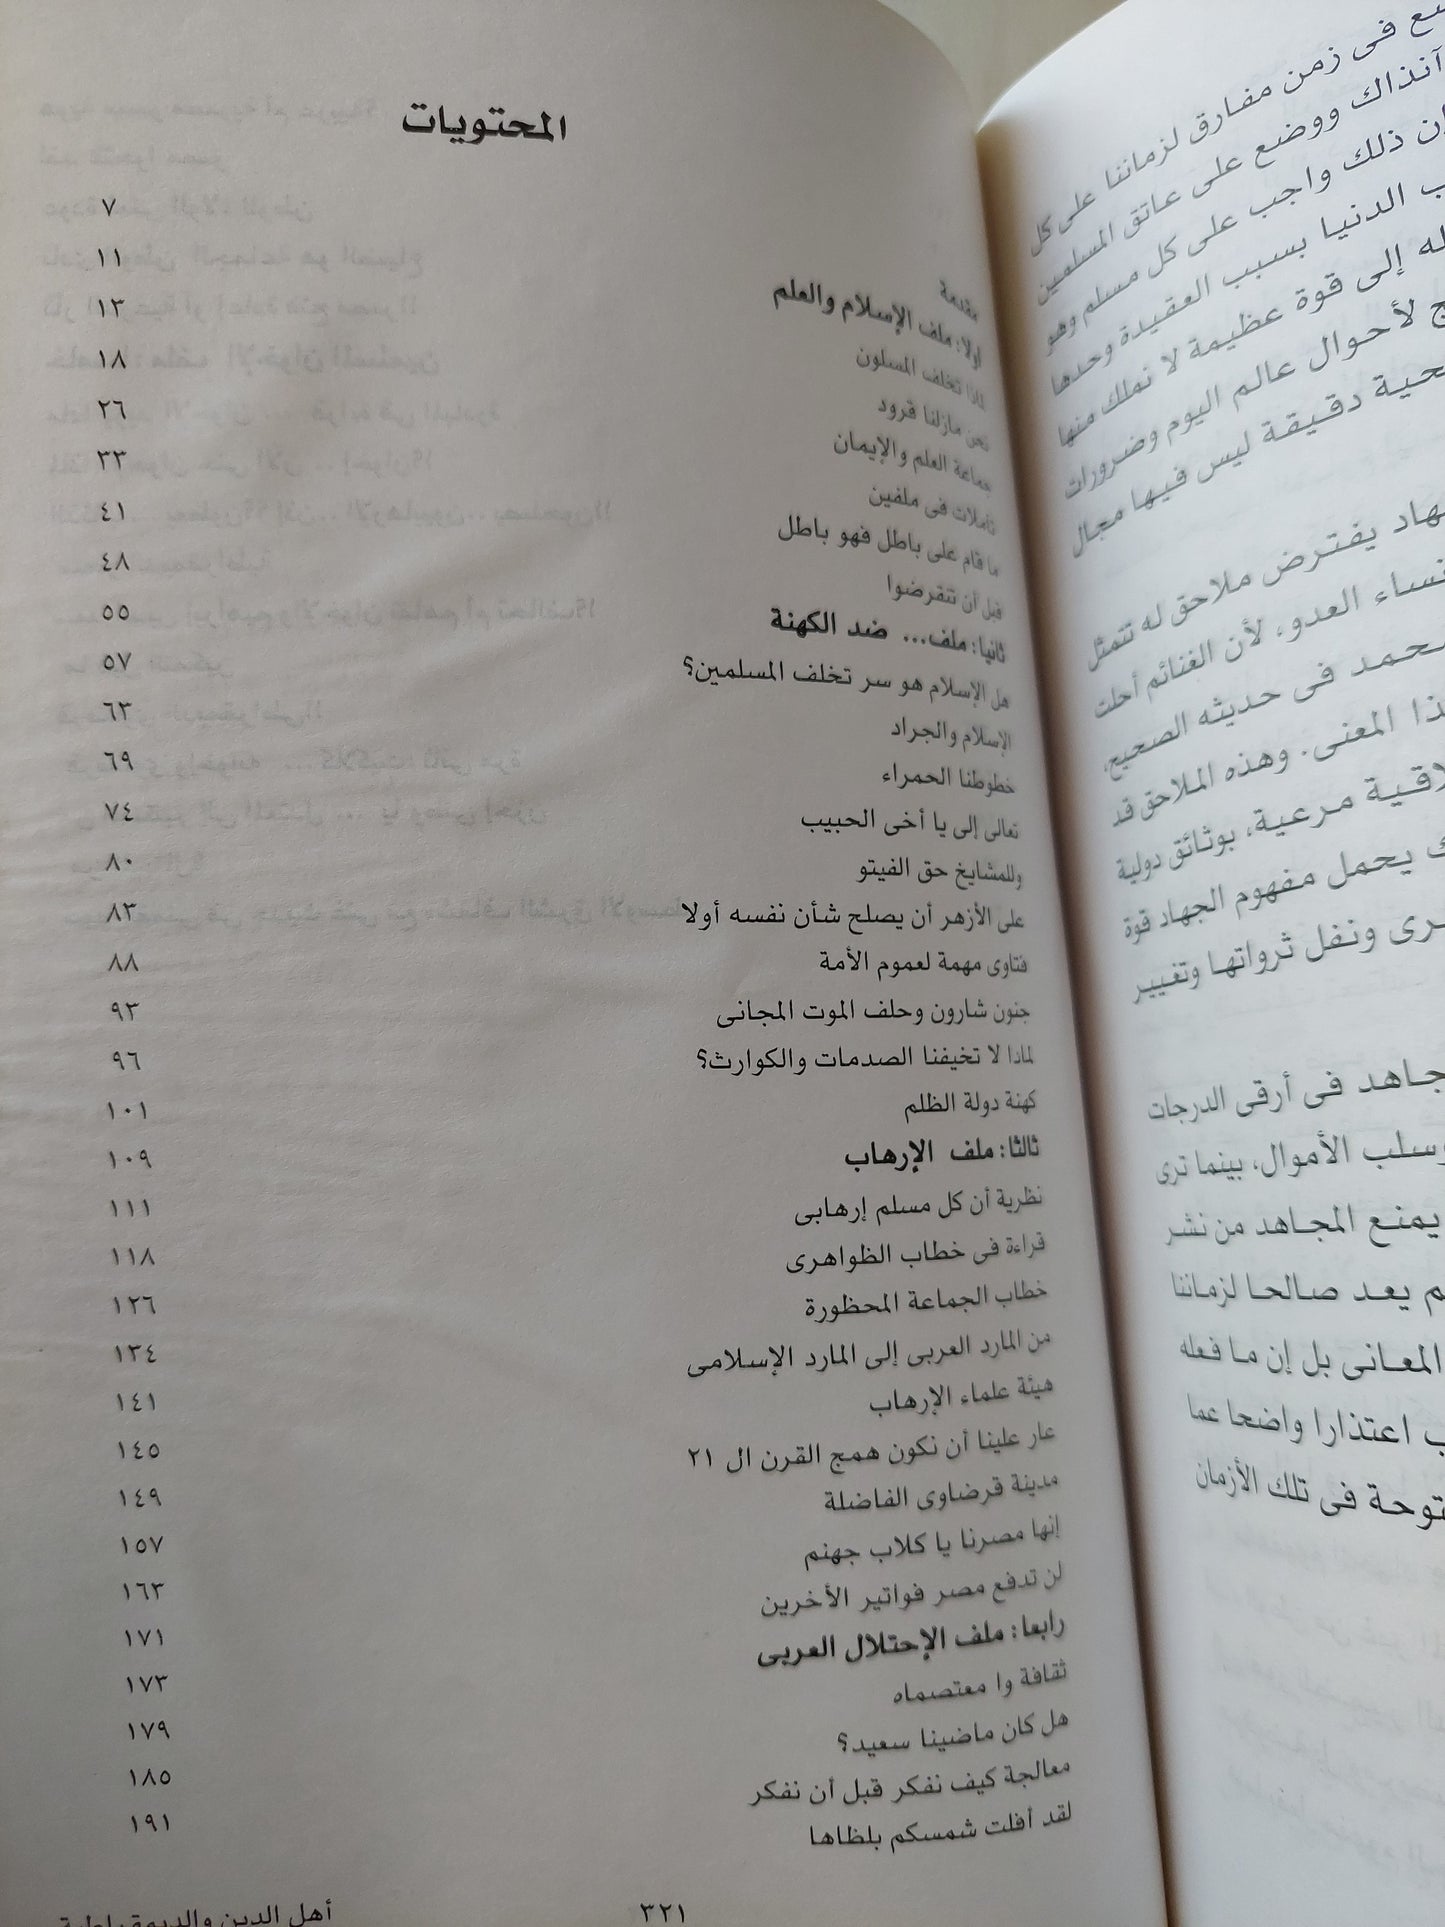 المحتويات
مقدمة ٧
أولا: ملف الإسلام والعلم ١١
لماذا تخلف المسلون ١٣
نحن مازلنا قرود ١٨
جماعة العلم والإيمان ٢٦
تأملات فى ملفين ٣٣
ما قام على باطل فهو باطل ٤١
قبل أن تنقرضوا ٤٨
ثانيا: ملف... ضد الكهنة ٥٥
هل الإسلام هو سر تخلف المسلمين؟ ٥٧
الإسلام والجراد ٦٣
خطوطنا الحمراء ٦٩
تعالى إلى يا أخى الحبيب ٧٤
وللمشايخ حق الفيتو ٨٠
على الأزهر أن يصلح شأن نفسه أولا ٨٣
فتاوى مهمة لعموم الأمة ٨٨
جنون شارون وحلف الموت المجانى ٩٣
لماذا لا تخيفنا الصدمات والكوارث؟ ٩٦
كهنة دولة الظلم ١٠١
ثالثا: ملف الإرهاب ١٠٩
نظرية أن كل مسلم إرهابى ١١١
قراءة فى خطاب الظواهرى ١١٨
خطاب الجماعة المحظورة ١٢٦
من المارد العربى إلى المارد الإسلامى ١٣٤
هيئة علماء الإرهاب ١٤١
عار علينا أن نكون همج القرن ال ٢١ ١٤٥
مدينة قرضاوى الفاضلة ١٤٩
إنها مصرنا يا كلاب جهنم ١٥٧
لن تدفع مصر فواتير الأخرين ١٦٣
رابعا: ملف الإحتلال العربى ١٧١
ثقافة وا معتصماه ١٧٣
هل كان ماضينا سعيد؟ ١٧٩
معالجة كيف نفكر قبل أن نفكر ١٨٥
لقد أفلت شمسكم بلظاها ١٩١
٣٢١
أهل الدين والديمقراطية
فى زمن مفارق لزماننا على كل
آنذاك ووضع على عاتق المسلمين
ذلك واجب على كل مسلم وهو
الدنيا بسبب العقيدة وحدها
إلى قوة عظيمة لا نملك منها
لأحوال عالم اليوم وضرورات
دقيقة ليس فيها مجال
يفترض ملاحق له تتمثل
العدو، لأن الغنائم أحلت
فى حديثه الصحيح،
المعنى. وهذه الملاحق قد
مرعية، بوثائق دولية
يحمل مفهوم الجهاد قوة
ونفل ثرواتها وتغيير
فى أرقى الدرجات
وسلب الأموال، بينما ترى
يمنع المجاهد من نشر
يعد صالحا لزماننا
المعانى بل إن ما فعله
اعتذارا واضحا عما
فى تلك الأزمان